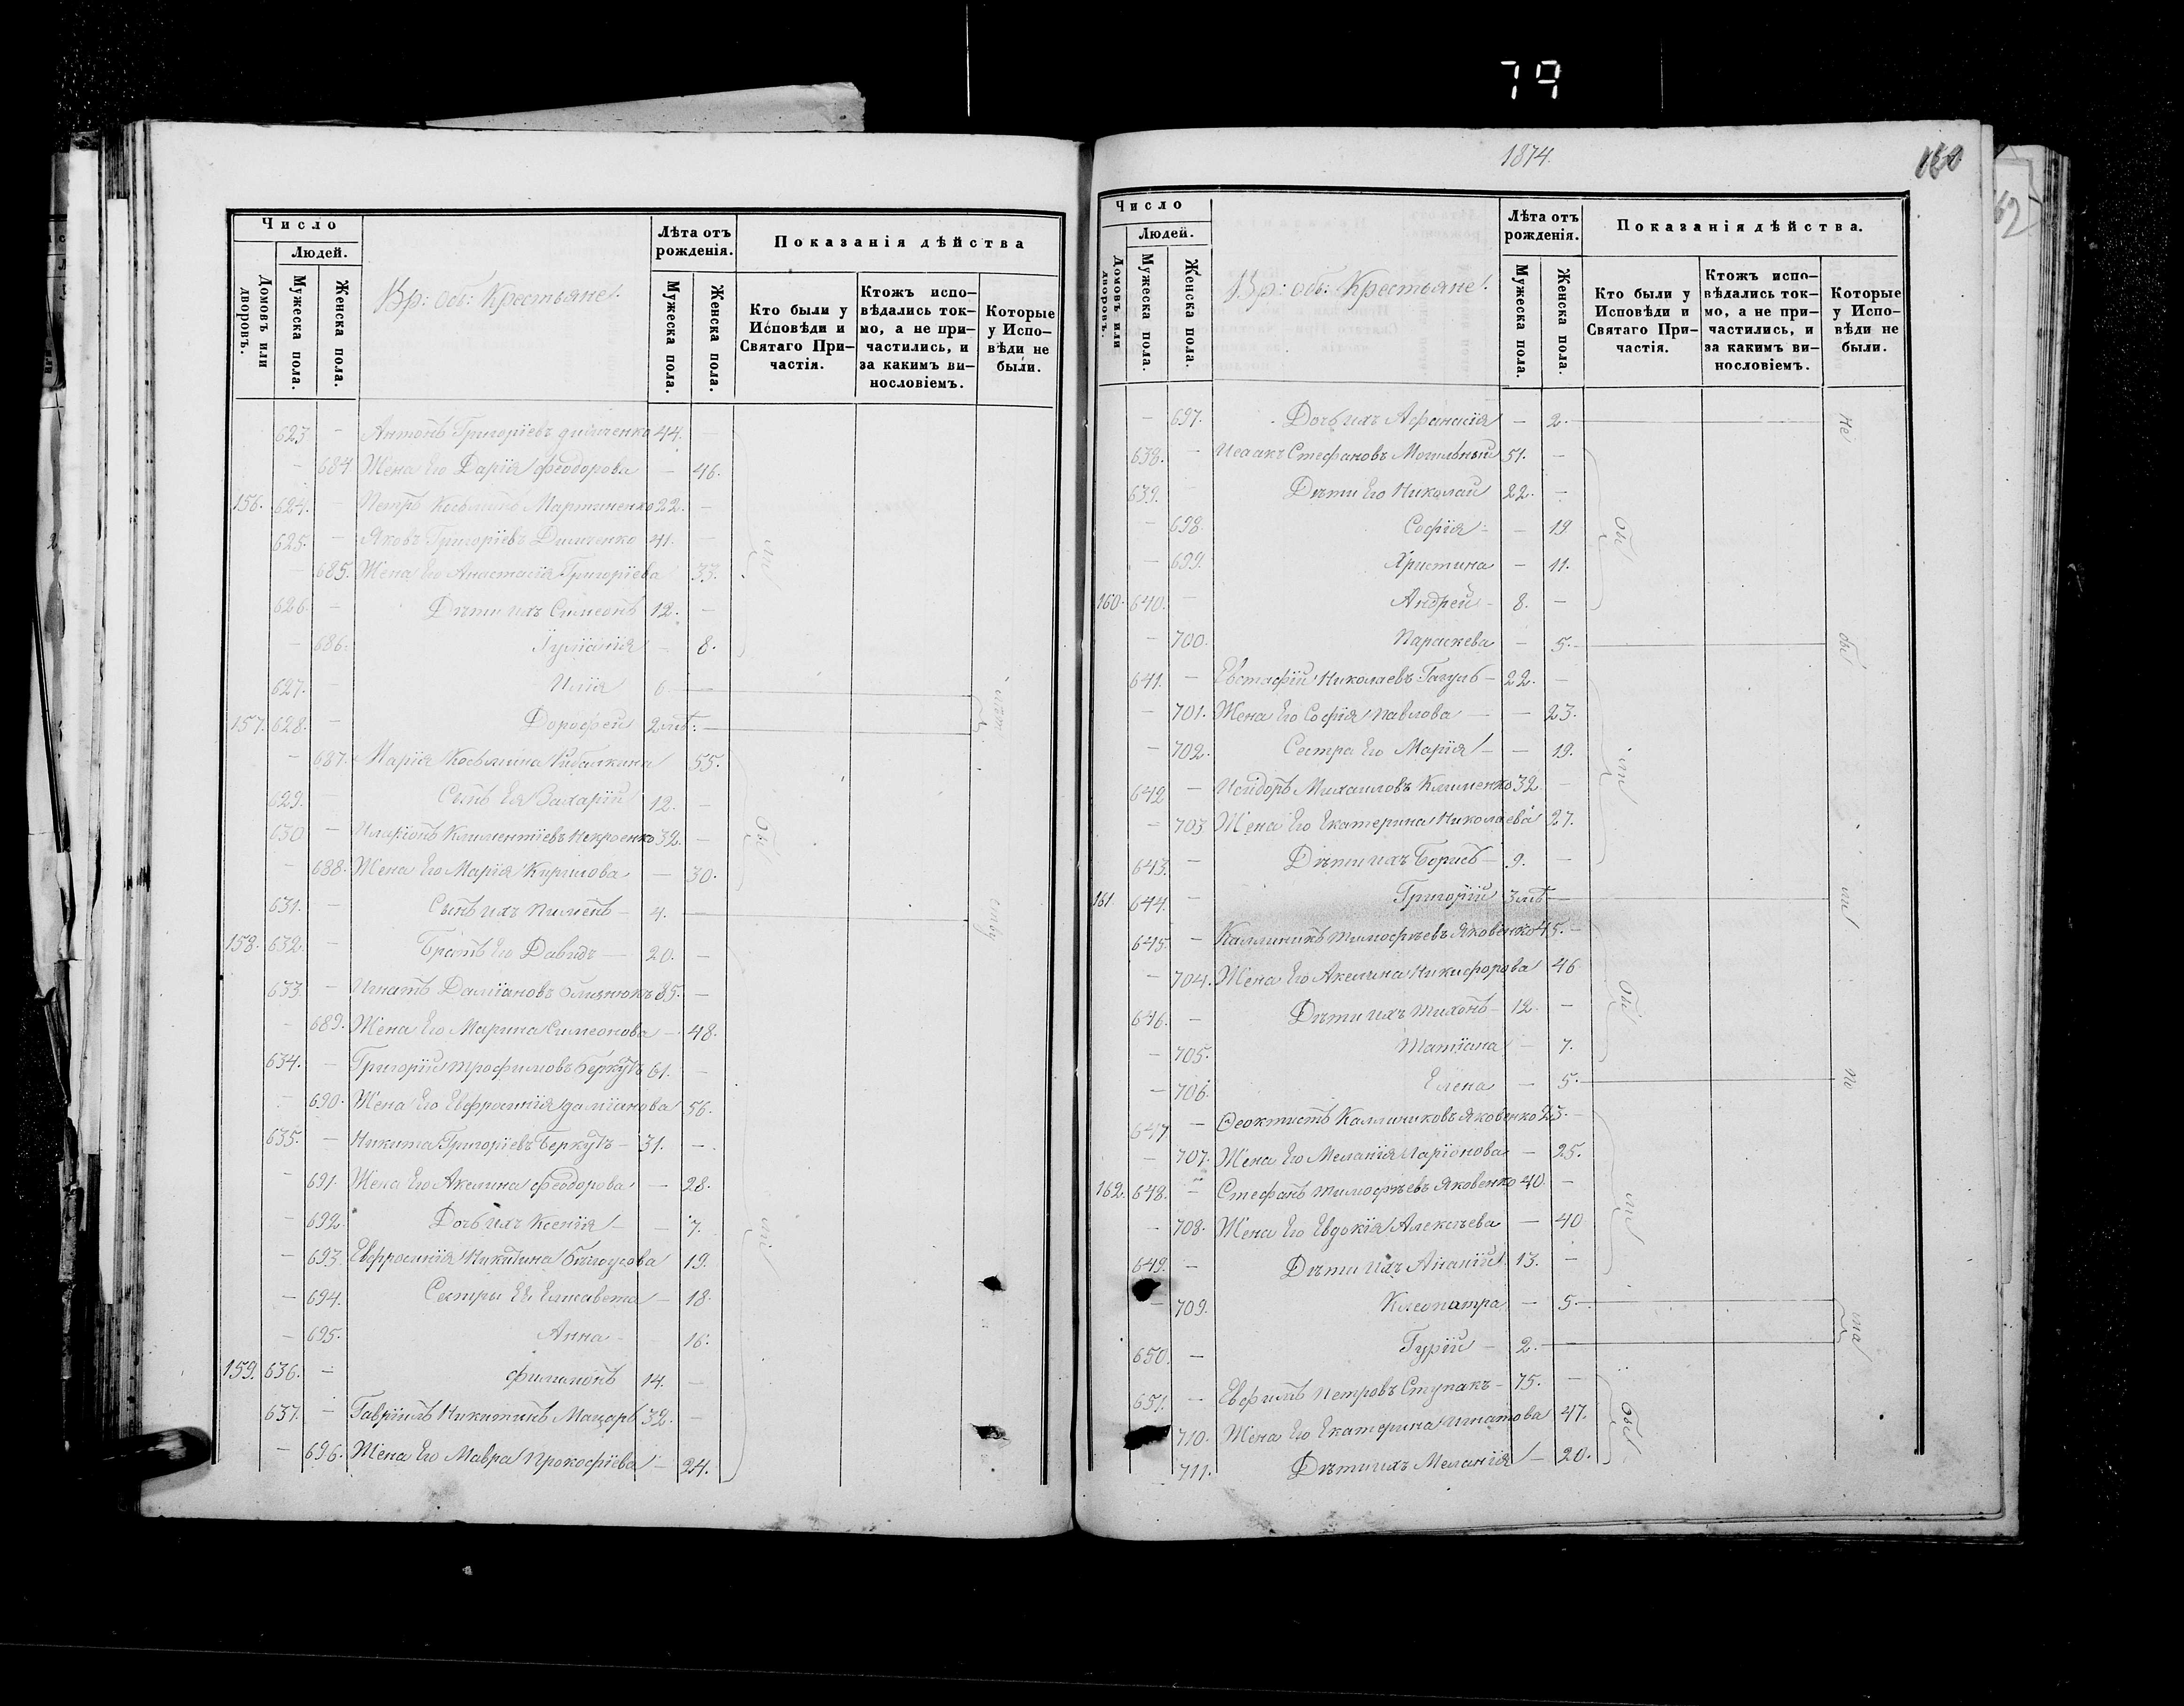 79
Число
Людей.
Домовъ или дворовъ.
Мужеска пола.
Женска пола.
Вр: об: Крестьяне.
Лѣта отъ рожденія.
Мужеска пола.
Женска пола.
Показанія дѣйства
Кто были у Исповѣди и Святаго Причастія.
Ктожъ исповѣдались токмо, а не причастились, и за какимъ винословіемъ.
Которые у Исповѣди не были.
623 - Антонъ Григоріевъ 44. -
- 684 Жена Его Дарія Феодорова - 46.
156. 624. - Петръ Козьминъ Мартиненко 22. -
625. - Яковъ Григоріевъ Димченко 41. -
- 685. Жена Его Анастасія Григоріева 33.
626. - Дѣти ихъ Симеонъ 12. -
- 686. Іуліанія - 8.
627. - Илія 6 -
157. 628. - Дорофей 2 лѣт: -
- 687. Марія Козьмина 55.
629. - Сынъ Ея Захарій 12. -
630 - Иларіонъ Климентіевъ 32. -
- 688. Жена Его Марія Кирилова - 30.
631. - Сынъ ихъ Пименъ - 4. -
158. 632. - Братъ Его Давидъ - 20. -
633. - Игнатъ Даміановъ Близнюкъ 85. -
- 689. Жена Его Марина Симеонова - 48.
634. - Григорій Трофимовъ Беркутъ 61. -
- 690. Жена Его Евфросинія Даміанова 56.
635. - Никита Григоріевъ Беркутъ - 31. -
- 691. Жена Его Акелина Феодорова - 28.
- 692. Дочь ихъ Ксенія - - 7.
- 693. Евфросинія Никитина Бѣлоусова 19.
- 694. Сестры Её Елисавета - 18.
- 695. Анна - 16.
159. 636. - Филимонъ 14. -
637. - Гавріилъ Никитинъ Мацарь 32. -
- 696. Жена Его Мавра Прокофіева - 24.
1874.
160
62
Число
Людей.
Домовъ или дворовъ.
Мужеска пола.
Женска пола.
Вр: об: Крестьяне.
Лѣта отъ рожденія.
Мужеска пола.
Женска пола.
Показанія дѣйства.
Кто были у Исповѣди и Святаго Причастія.
Ктожъ исповѣдались токмо, а не причастились, и за какимъ винословіемъ.
Которые у Исповѣди не были.
- 697. - Дочь ихъ Афанасія - 2.
638. - Исаакъ Стефановъ Могильный 51. -
639. - Дѣти Его Николай 22. -
- 698. Софія - - 19
- 699. Христина - 11.
160. 640. - Андрей - 8. -
- 700. Параскева - 5.
641. - Евстафій Николаевъ - 22. -
- 701. Жена Его Софія Павлова - - 23.
- 702. Сестра Его Марія - - 19.
642 - Исидоръ Михаиловъ Клименко 32. -
- 703 Жена Его Екатерина Николаева 27.
643. - Дѣти ихъ Борисъ - 9. -
161 644. - Григорій 3 лѣт -
645. - Каллиникъ Тимофѣевъ Яковенко 45. -
- 704. Жена Его Акелина Никифорова 46
646. - Дѣти ихъ Тихонъ - 12. -
- 705. Татіана - 7.
- 706. Елена - 5.
647 - Феоктистъ Каллиниковъ Яковенко 25. -
- 707. Жена Его Меланія Ларіонова - 25.
162. 648. - Стефанъ Тимофѣевъ Яковенко 40. -
- 708. Жена Его Евдокія Алексѣева - 40
649. - Дѣти ихъ Ананій 13. -
- 709. Клеопатра - 5.
650. - Гурій - 2.
651. - Евфимъ Петровъ Ступакъ - 75. -
710. Жена Его Екатерина Игнатова 47.
711. Дѣти ихъ Меланія - 20.